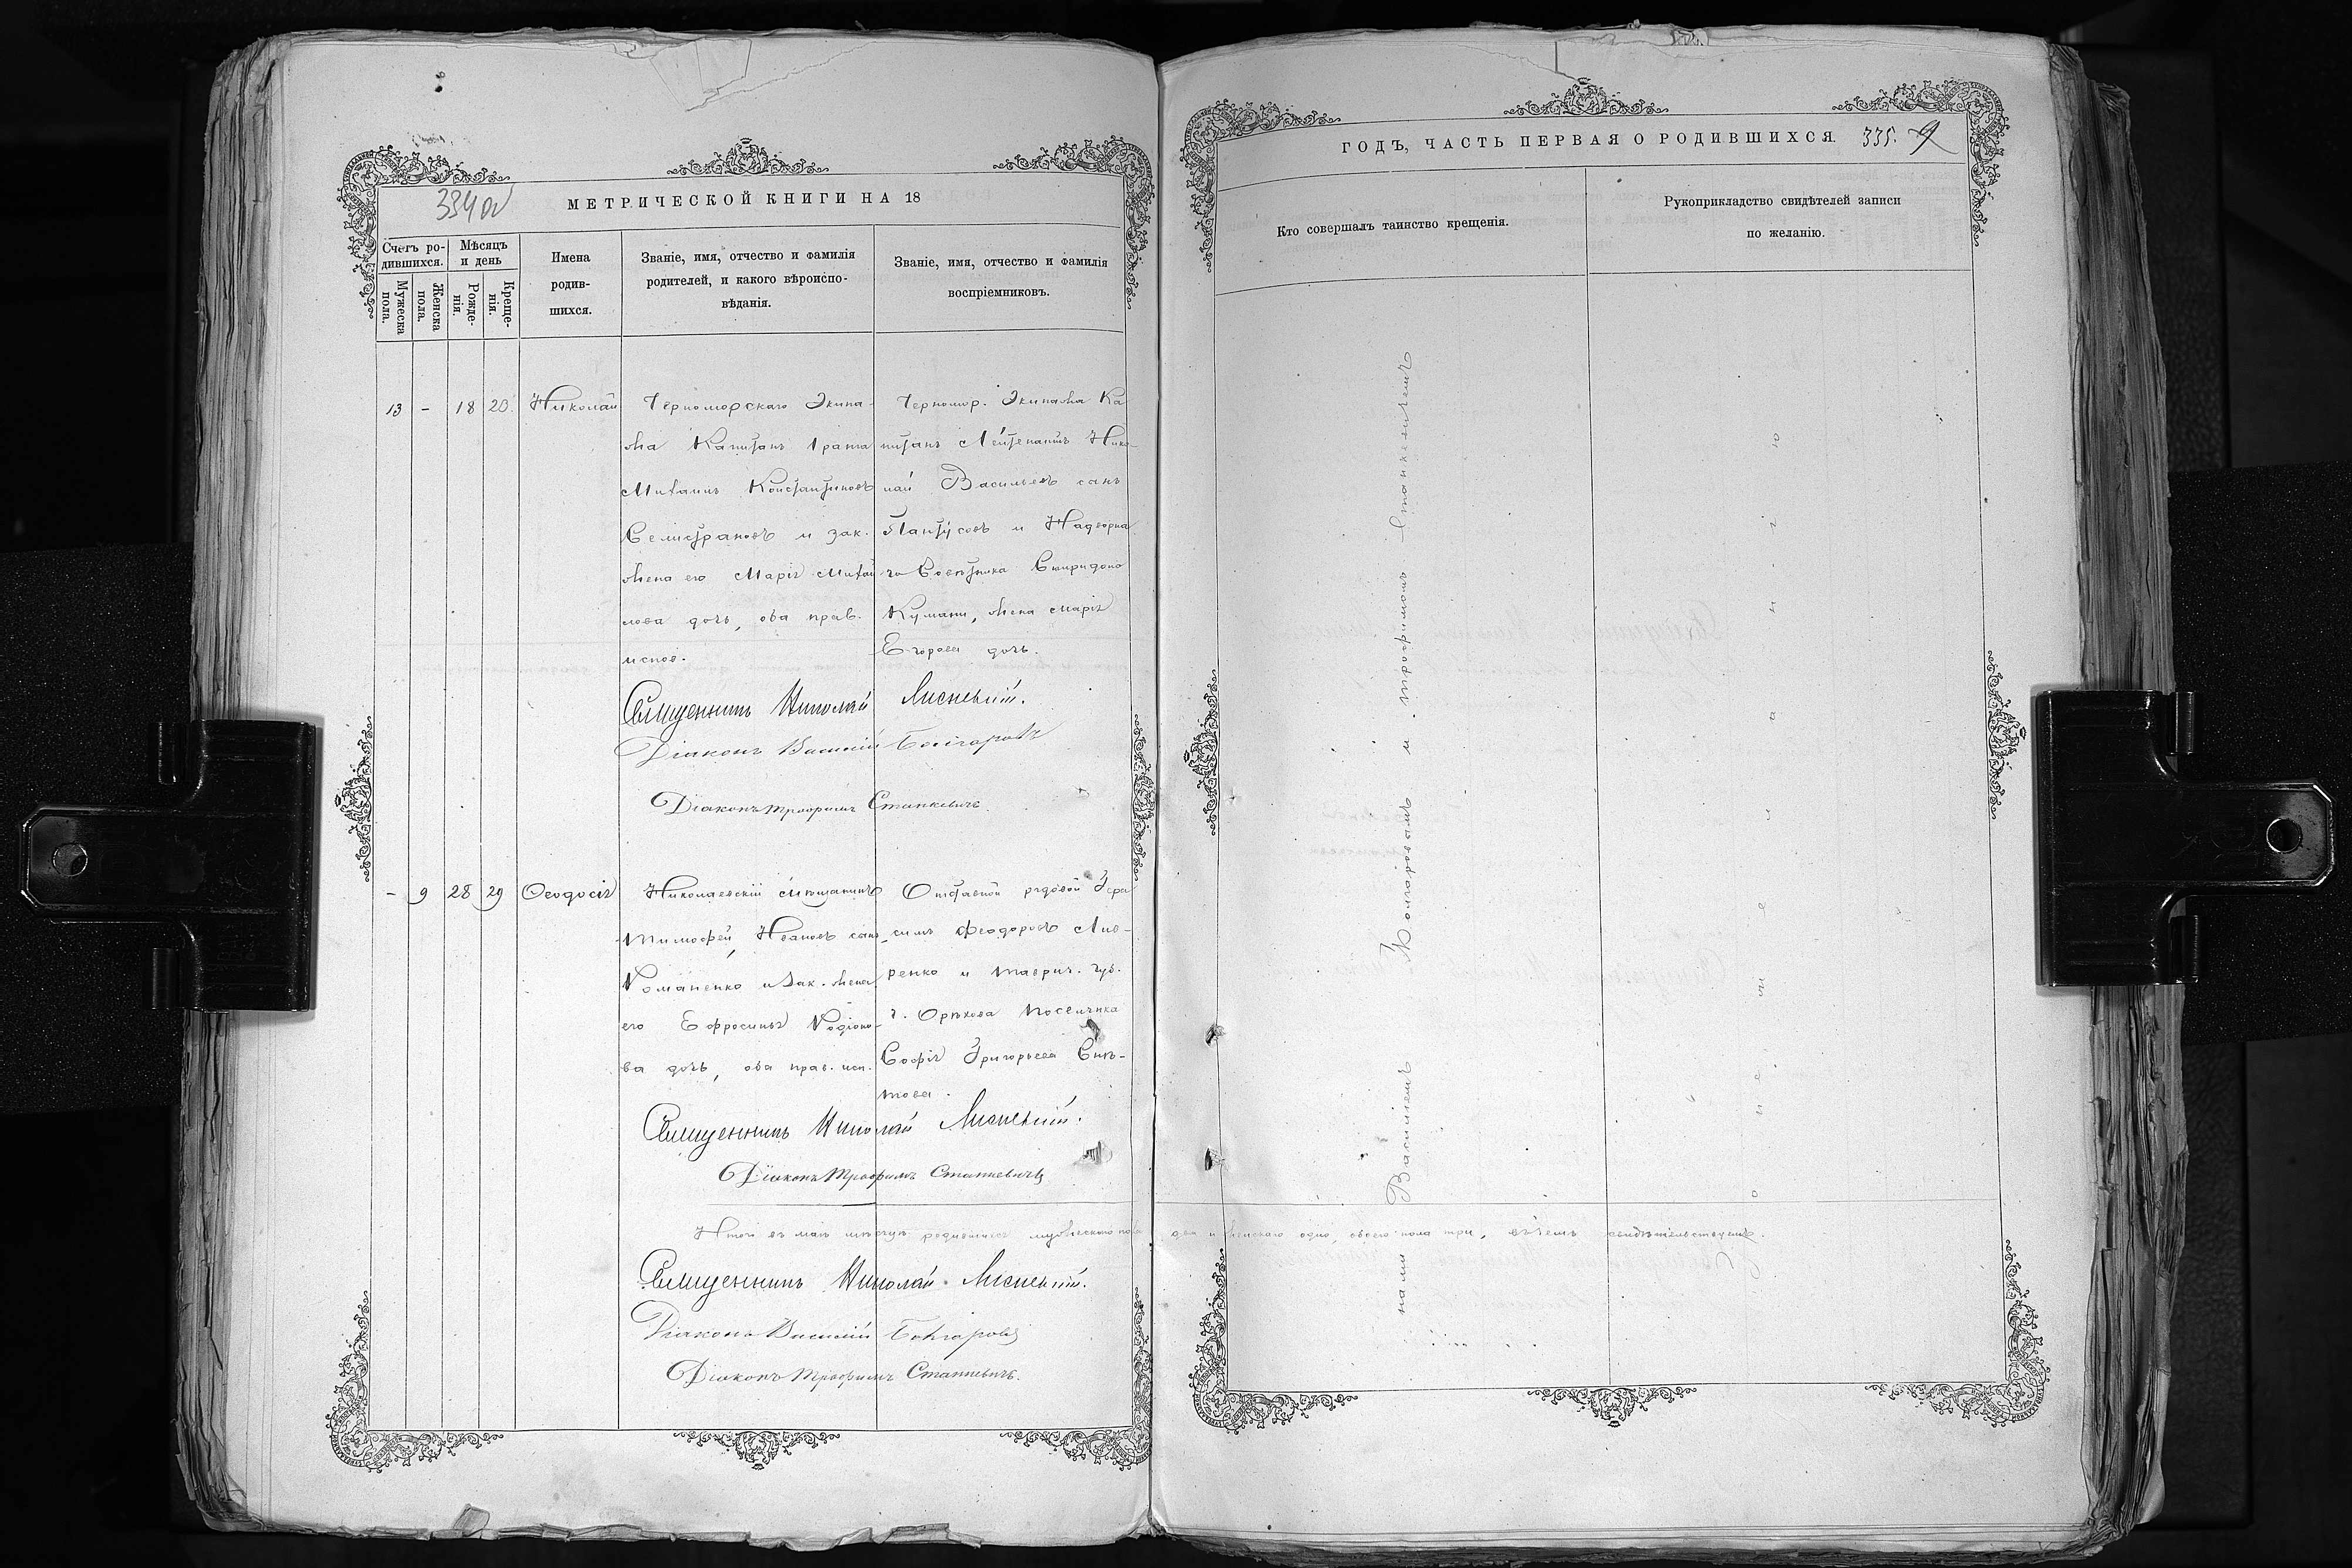 334 об
МЕТРИЧЕСКОЙ КНИГИ НА 18
Счетъ ро-
дившихся.
Мужеска
пола.
Женска
пола.
Мѣсяцъ
и день
Рожде-
нія.
Креще-
нія.
Имена
родив-
шихся.
Званіе, имя, отчество и фамилія
родителей, и какого вѣроиспо-
вѣданія.
Званіе, имя, отчество и фамилія
воспріемниковъ.
13 - 18 20 Николай
Черноморскаго Экипа-
жа Капитанъ 1 ранга
Михаилъ Константиновъ
Селистрановъ и зак.
жена его Марія Михай-
лова дочь, оба прав.
испов.
Черномор. Экипажа Ка-
питанъ Лейтенантъ Нико-
лай Васильевъ сынъ
Пантусовъ и Надворна-
го Совѣтника Спиридона
Кумани, жена Марія
Егорова дочь.
Священникъ Николай
Діаконъ Василій Болгаровъ
Діаконъ Трофимъ Станкевичъ.
- 9 28 29 Ѳеодосія
Николаевскій мѣщанинъ
Тимофей Ивановъ сынъ
Романенко и зак. жена
его Ефросинія Родіоно-
ва дочь, оба прав. исп.
Отставной рядовой Гера-
симъ Феодоровъ
ренко и Таврич. губ.
г. Орѣхова поселянка
Софія Григорьева
това.
Священникъ Николай
Діаконъ Трофимъ Станкевичъ
Итого въ маѣ мѣсяцѣ родившихся мужескаго пола два и женскаго одно, обоего пола три, въ чемъ свидѣтельствуемъ.
Священникъ Николай
Діаконъ Василій Болгаровъ
Діаконъ Трофимъ Станкевичъ.
ГОДЪ, ЧАСТЬ ПЕРВАЯ О РОДИВШИХСЯ. 335.
Кто совершалъ таинство крещенія.
Рукоприкладство свидѣтелей записи
по желанію.
нами Василіемъ Болгаровымъ и Трофимомъ Станкевичемъ